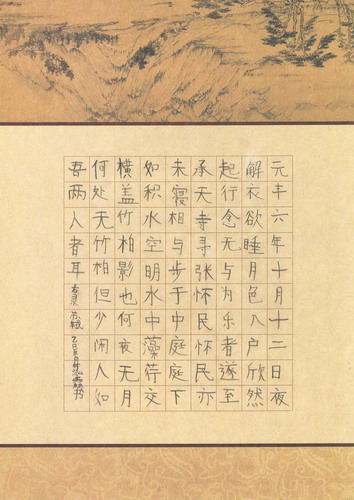 元丰六年十月十二日夜
解衣欲睡月色入户欣然
起行念无与为乐者遂至
承天寺寻张怀民怀民亦
未寝相与步于中庭庭下
如积水空明水中藻荇交
横盖竹柏影也何夜无月
何处无竹柏但少闲人如
吾两人者耳 苏轼 书